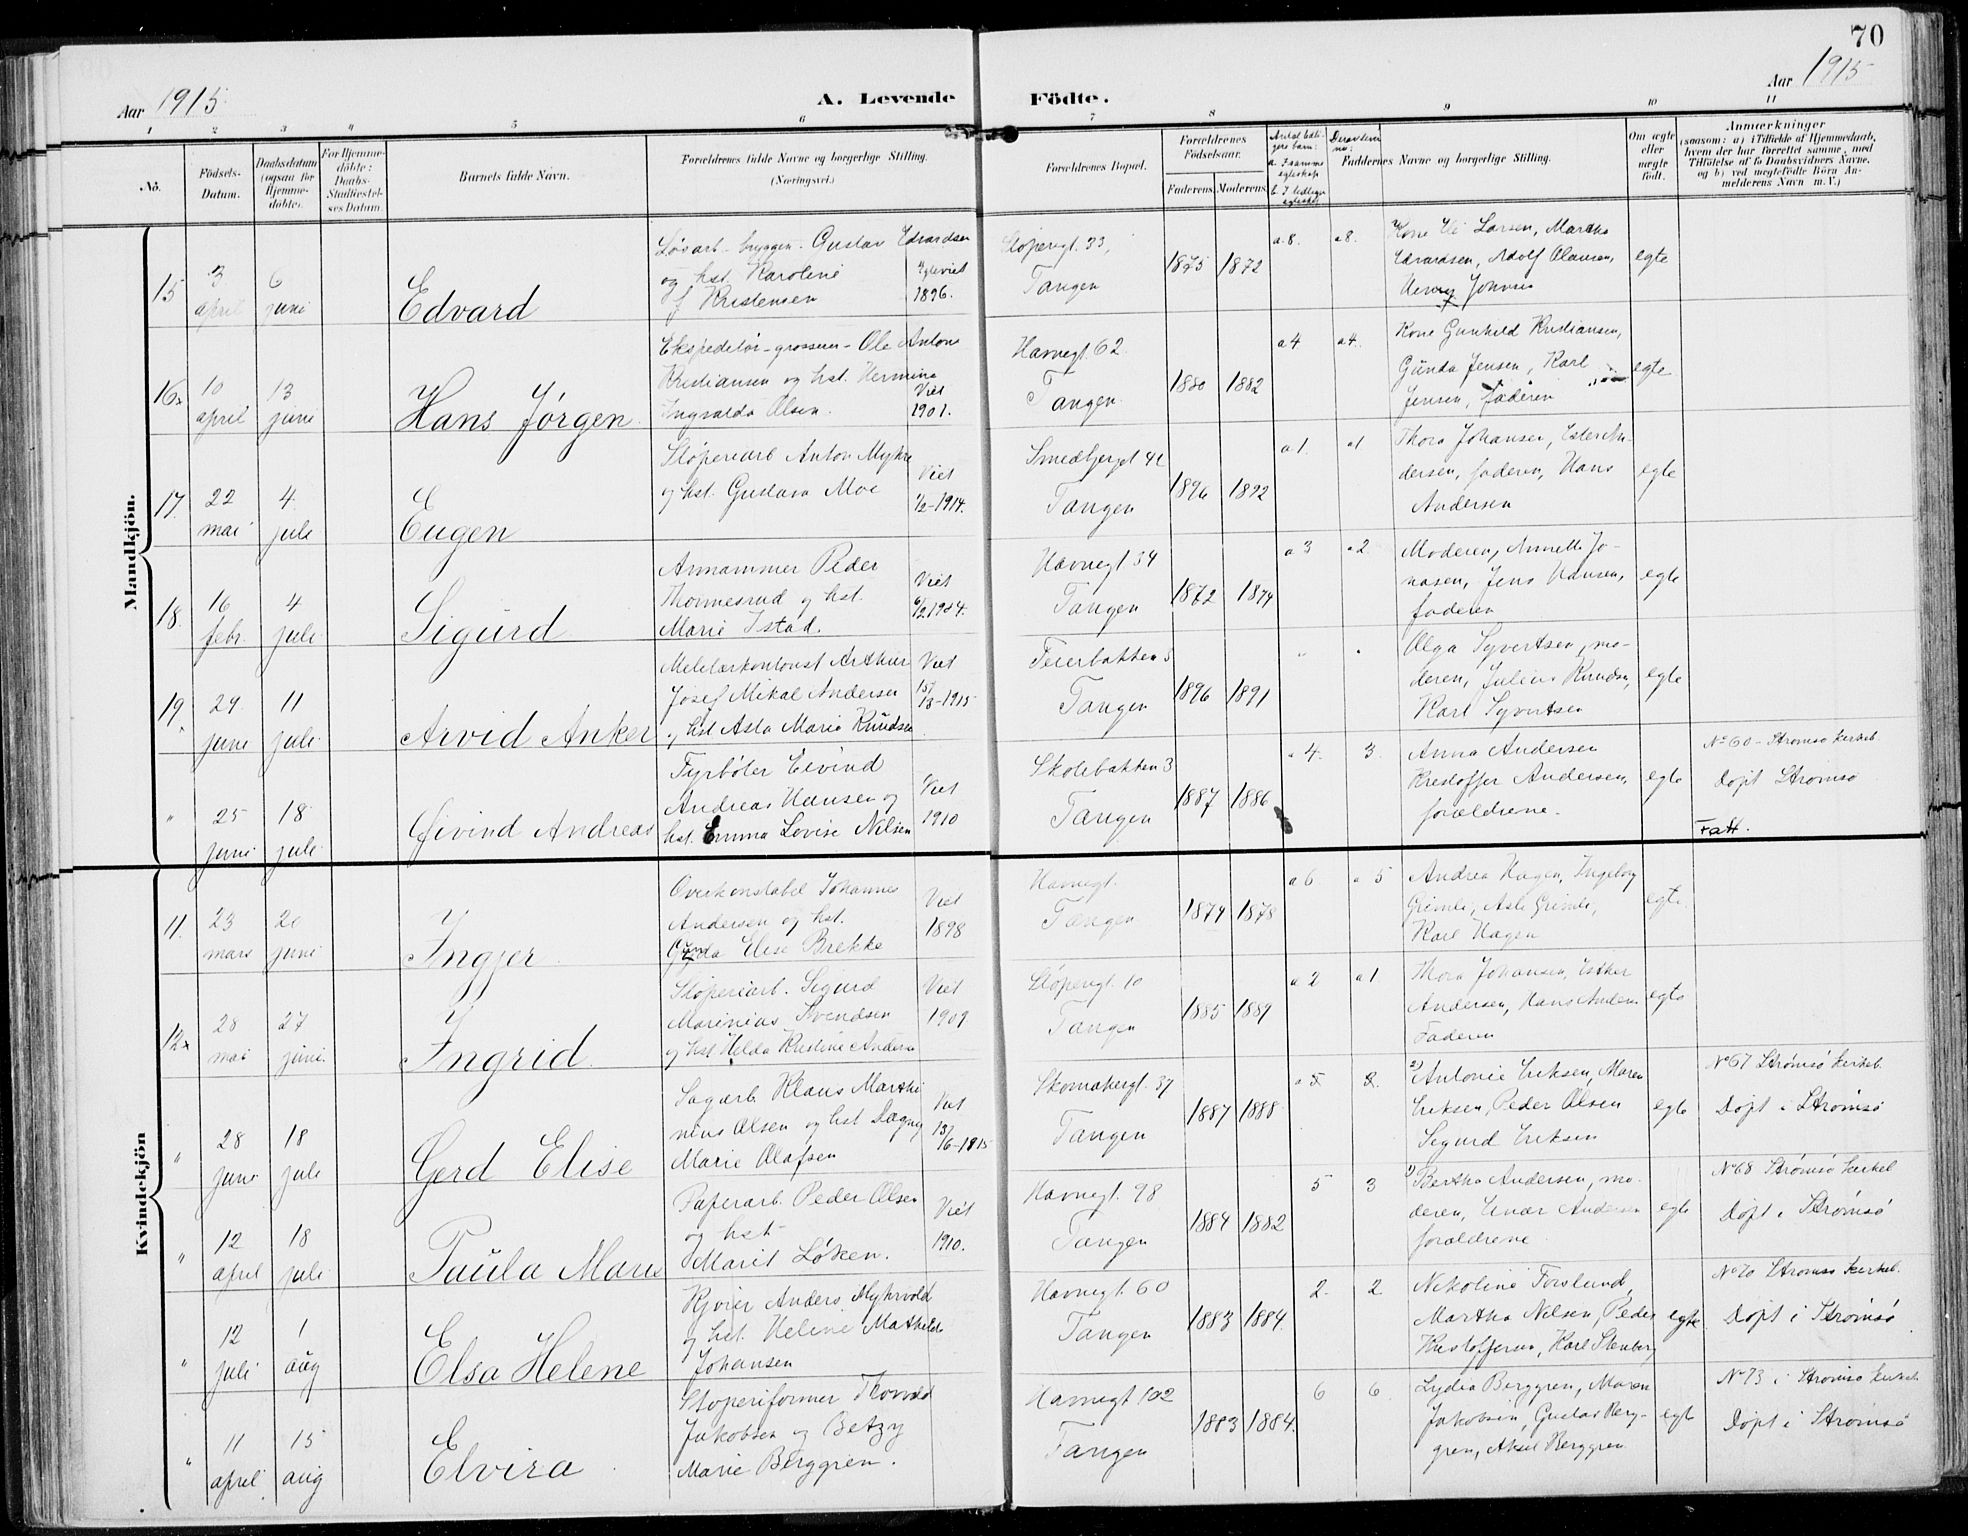 70
Aar 1915
A. Levende
Födte.
Aar 1915
1 2 3 4 5 6 7 8 9 10 11
No.
Födsels-Datum.
Daabsdatum (ogsaa for Hjemmedöbte).
For Hjemmedöbte: Daabs-Stadfæstelses Datum.
Barnets fulde Navn.
Forældrenes fulde Navne og borgerlige Stilling.
(Næringsvei.)
Forældrenes Bopæl.
Forældrenes Födselsaar.
Faderens. Moderens.
Faddernes Navne og borgerlige Stilling.
Om ægte eller uægte födt.
Anmærkninger
(saasom: a) i Tilfælde af Hjemmedaab, hvem der har forrettet samme, med Tilföielse af to Daabsvidners Navne, og b) ved uægtefödte Börn Anmelderens Navn m. V.)
Mandkjön.
15 3 april 6 juni Edvard
Gustav Edvardsen
og hst. Karoline
f Kristensen
viet 1896.
Støperigt. 33, Tangen
1875 1872 a.8. a8.
Larsen, Martha
Edvardsen, Adolf Olausen,
egte
16x 10 april 13 juni Hans Jörgen
Ekspeditør - grosserer - Ole Anton
Kristiansen og hst. Hermine
Ingvalda Olsen.
Viet 1901.
Havnegt 62. Tangen
1880 1882 a 4 a 4.
Kone Gunhild Kristiansen,
Gunda Jensen, Karl
Jensen, faderen
egte
17. 22 mai 4. juli Eugen
Støperiarb Anton Myhre
og hst. Gustava Moe
Viet 1/2-1914.
Smedbjerget 42 Tangen
1896 1892 a 1. a 1
Thora Johansen, Ester An-
dersen, faderen, Hans
Andersen
egte
18. 16 febr. 4 juli Sigurd
Annammer Peder
Thormesrud og hst.
Marie Istad.
Viet
Havnegt 34 Tangen
1872 1874 a 3 a 2
Moderen, Annette Jo-
nasen, Jens Hansen,
faderen
egte
19. 29. juni 11 juli Arvid Anker
Arthur
Josef Mikal Andersen
og hst Asta Marie Knudsen
Viet 15/3-1915
Feierbakken 5 Tangen
1896 1891
Olga Syvertsen, mo-
deren, Julius Knudsen,
Karl Syvertsen
egte
" 25 juni 18 juli Øivind Andreas
Fyrbøter Eivind
Andreas Hansen og
hst. Emma Lovise Nilsen
Viet 1910
Skolebakken 3 Tangen
1887 1886 4. 3.
Anna Andersen
Kristoffer Andersen,
forældrene.
egte
No 60 - Strømsø kirkeb.
Døpt Strømsø
Fatt.
Kvindekjön
11. 23 mars 20 juni Ingjer
Overkonstabel Johannes
Andersen og hst.
Elise Brekke
Viet 1898
Havnegt. Tangen
1874 1878 a 6 a 5
Andrea Hagen, Ingeborg
Grimli, Asle Grimli,
Karl Hagen
egte.
12x 28 mai 27 juni. Ingrid
Støperiarb. Sigurd
Marinius Svendsen
og hst Helda Kristine Andersen
Viet 1909.
Støperigt. 10 Tangen
1885 1889 a 2 a 1
Thora Johansen, Esther
Andersen, Hans Andersen
Faderen
egte
" 28 juni 18 juli Gerd Elise
Sagarb. Klaus Marthi-
nius Olsen og hst Dagny
Marie Olafsen
Viet 13/6-1915
Skomakergt. 37 Tangen
1887 1888 a 5 2.
2) Antonie Eriksen, Maren
Eriksen, Peder Olsen
Sigurd Eriksen
egte
No 67 Strømsø kirkeb.
Døpt i Strømsø
" 12 april 18 juli Paula Marie
Papirarb. Peder Olsen
og hst
Marit Løken.
Viet 1910.
Havnegt. 98 Tangen
1884 1882 5 3
1) Bertha Andersen, mo-
deren, Einar Andersen
forældrene
egte
No 68 Strømsø kirkeb
Døpt i Strømsø
" 12 juli 1 aug Elsa Helene
Kjører Anders Myhrvold
og hst. Helene Mathilde
Johansen
Havnegt. 60 Tangen
1883 1884. 2. 2
Nikoline Forslund,
Martha Nilsen, Peder
Kristoffersen, Karl Stenberg
egte
No 70 Strømsø kirkeb.
Døpt i Strømsø
" 11 april 15 aug Elvira
Støperiformer Thorvald
Jakobsen og Betzy
Marie Berggren.
Havnegt 102 Tangen
1883 1884. 6 6
Lydia Berggren, Maren
Jakobsen, Gustav Berg-
gren, Aksel Berggren
egte
No 73 i Strømsø kirkeb.
Døpt i Strømsø